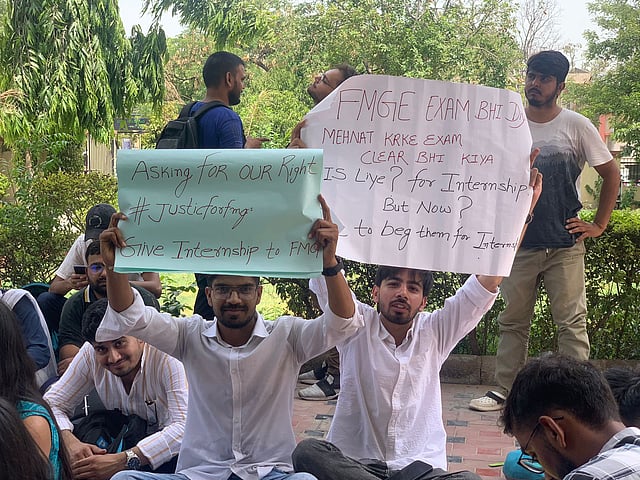 ASKING FOR OUR Right
#Justicforfmg
Give Internship to FMG
FMGE EXAM BHI D
MEHNAT KRKE EXAM
CLEAR BHI KIYA
IS Liye? for Internship
But Now?
to beg them for Interns